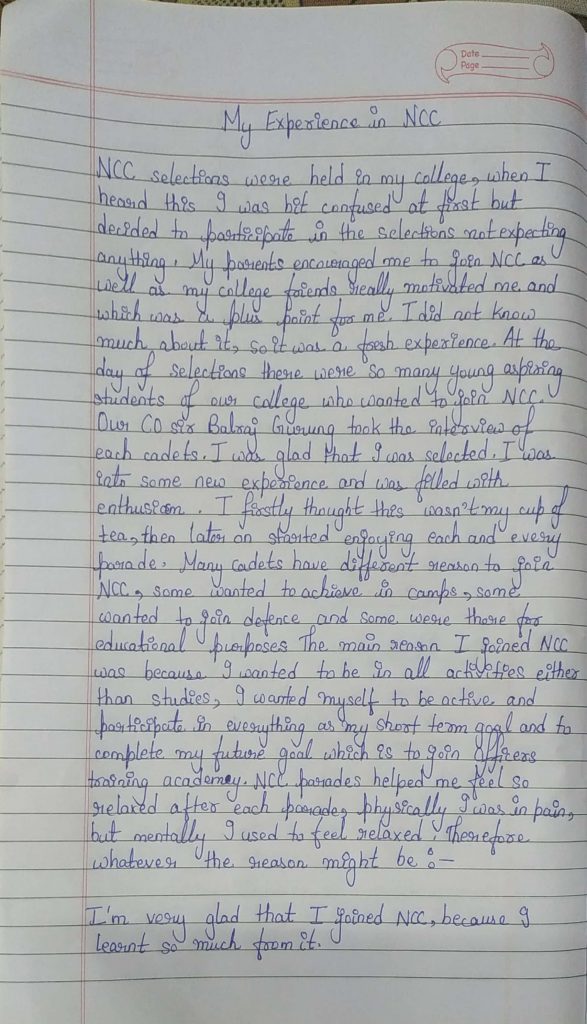 Date
Page
My Experience in NCC
NCC selections were held in my college, when I
heard this I was bit confused at first but
decided to participate in the selections not expecting
anything. My parents encouraged me to join NCC as
well as my college friends really motivated me and
which was a plus point for me. I did not know
much about it, so it was a fresh experience. At the
day of selections there were so many young aspiring
students of our college who wanted to join NCC.
Our CO sir Balraj Gurung took the interview of
each cadets. I was glad that I was selected. I was
into some new experience and was filled with
enthusiasm. I firstly thought this wasn't my cup of
tea, then later on started enjoying each and every
parade. Many cadets have different reason to join
NCC, some wanted to achieve in camps, some
wanted to join defence and some were there for
educational purposes The main reason I joined NCC
was because I wanted to be in all activities either
than studies, I wanted myself to be active and
participate in everything as my short term goal and to
complete my future goal which is to join officers
training academy. NCC parades helped me feel so
relaxed after each parade, physically I was in pain,
but mentally I used to feel relaxed. Therefore
whatever the reason might be :-
I'm very glad that I joined NCC, because I
learnt so much from it.